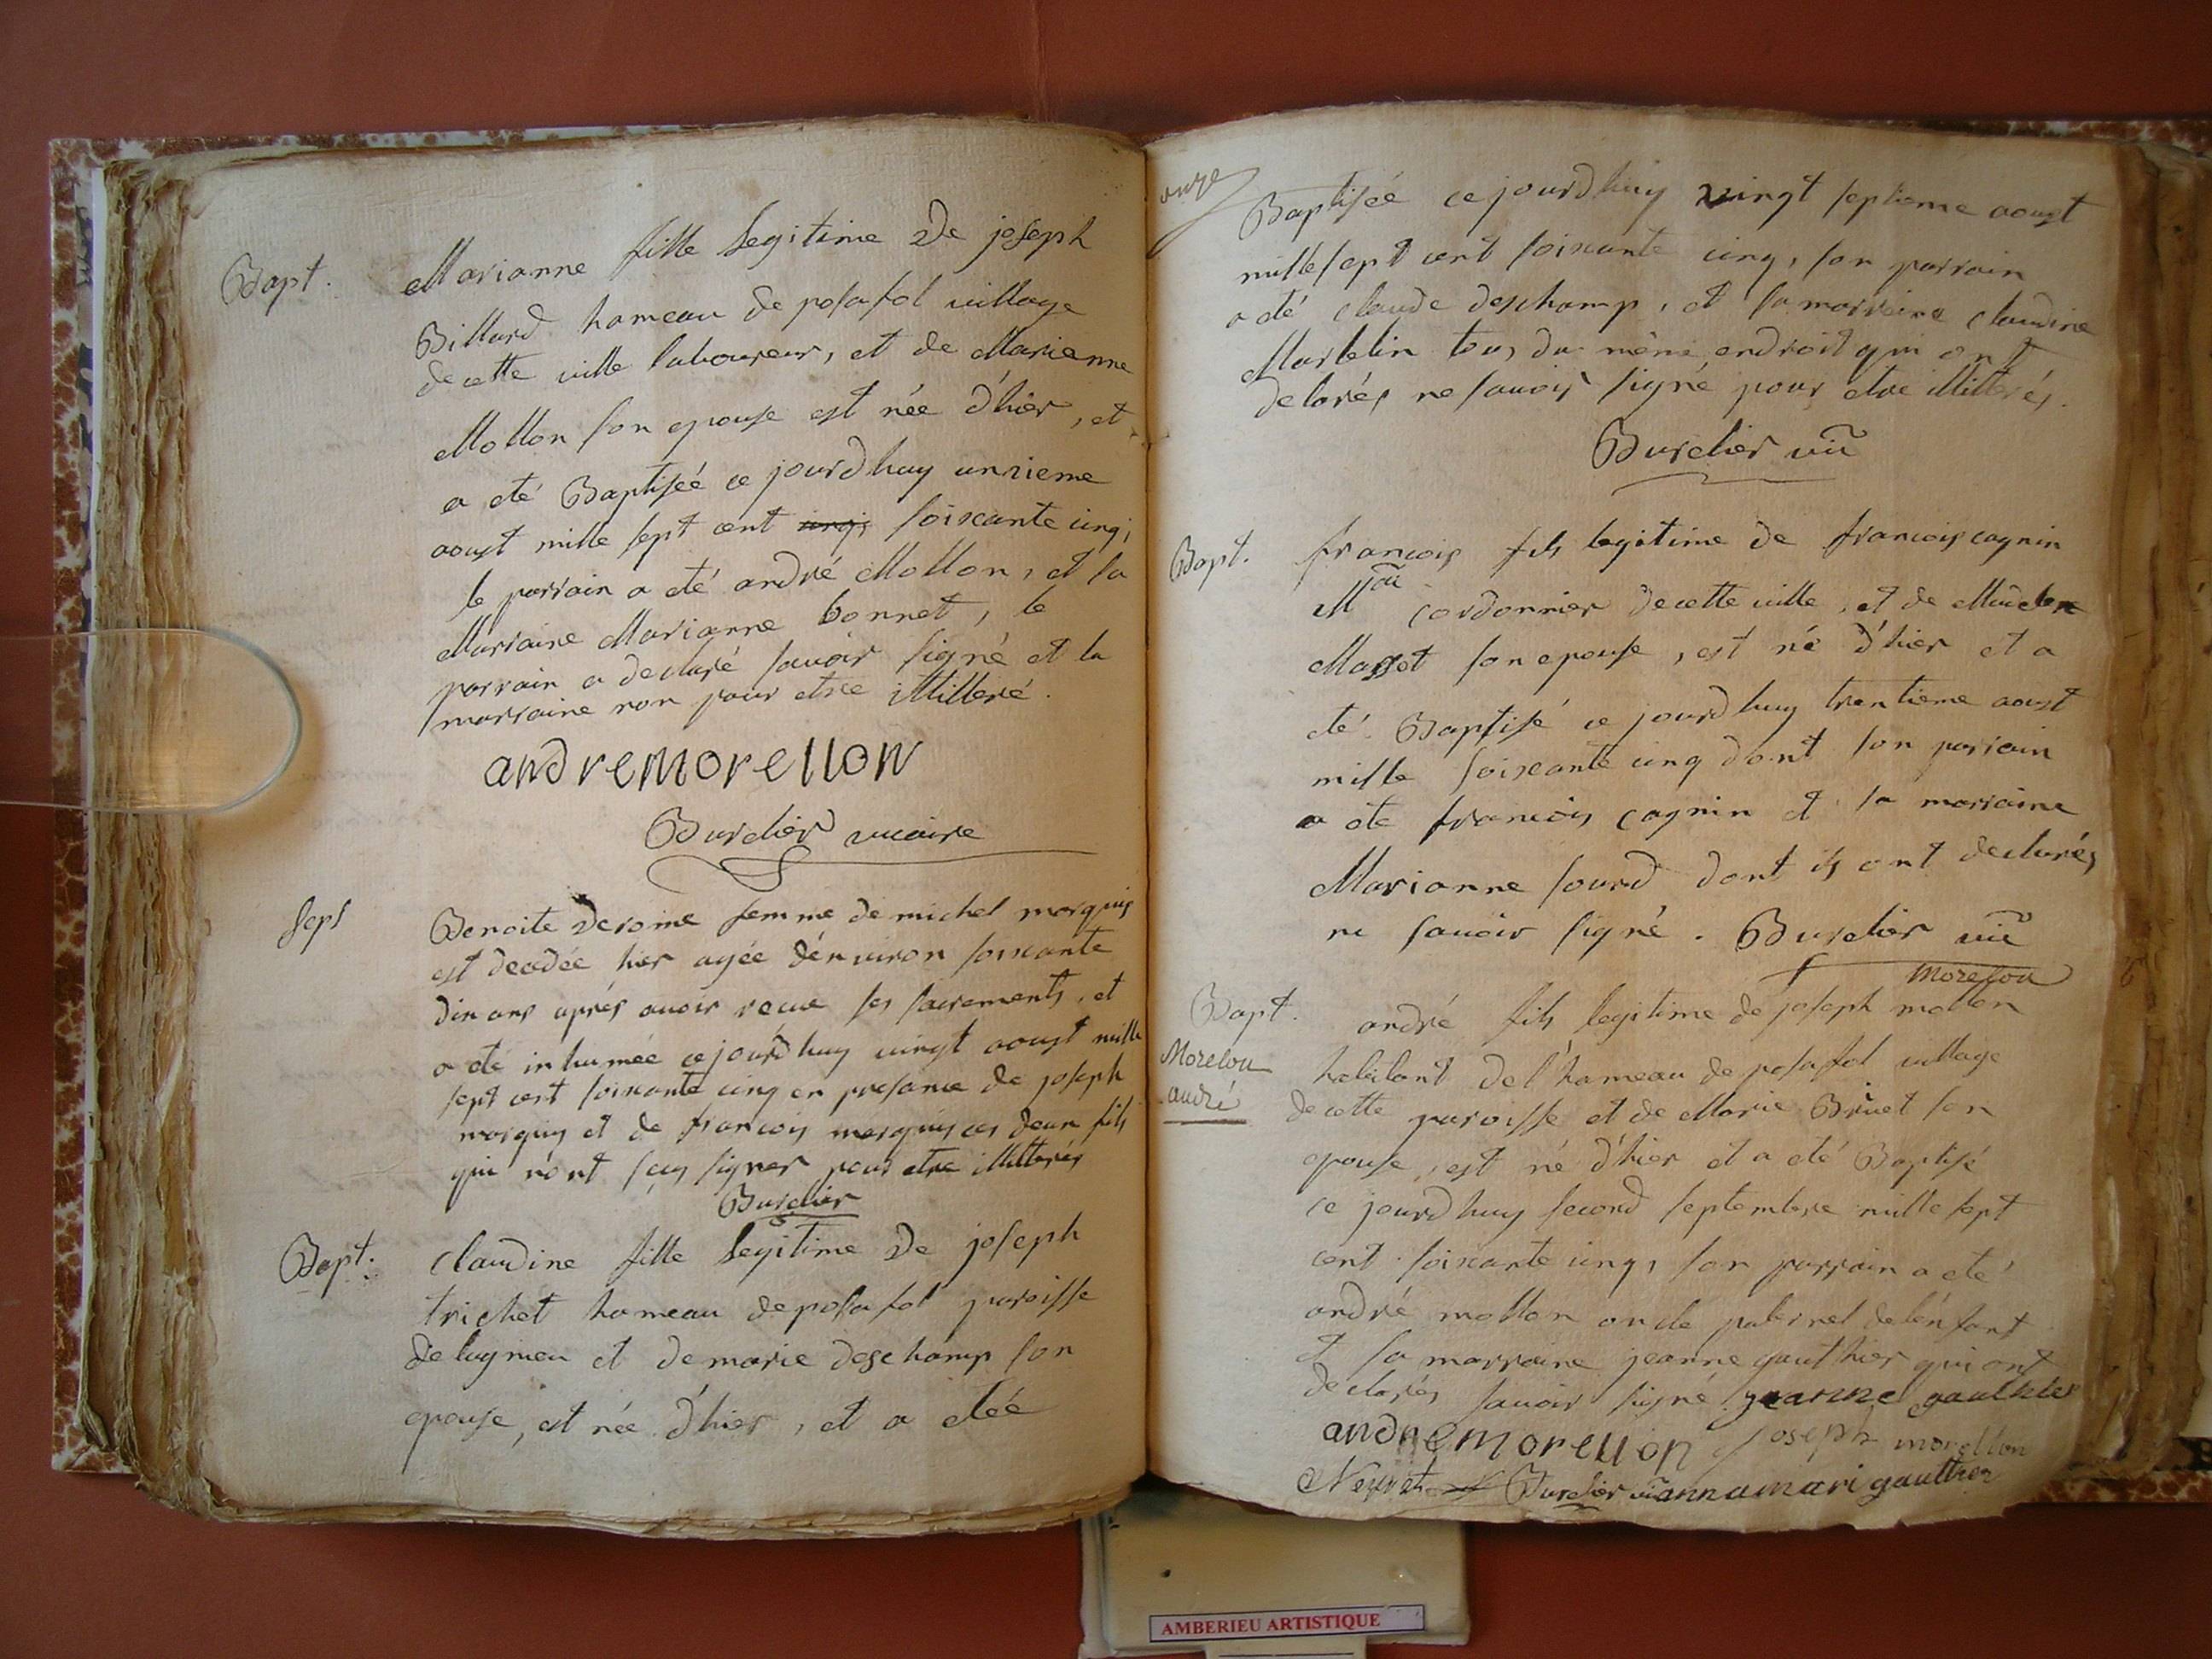 Bapt.
Marianne fille legitime De joseph
Billard hameau de posafol village
de cette ville laboureur, et de Marianne
Mollon son epouse est née d'hier, et
a eté Baptiseé ce jourdhuy unzieme
aoust mille sept cent cinq; soixante cinq;
le parrain a eté andré Mollon, et la
Marraine Marianne bonnet, le
parrain a declaré savoir signé et la
marraine non pour etre illitteré.
andremorellon
Burdier vicaire
Benoite Derome femme de michel marquis
est decedée hier agée d'environ soixante
dix ans aprés avoir recue ses sacrements, et
a eté inhumée ce jourdhuy vingt aoust mille
sept cent soixante cinq en presance de joseph
marquis et de francois marquis ces deux fils
qui n'ont sçus signer pour etre illitterés
Burdier
Bapt.
Claudine fille legitime De joseph
trichet hameau de posafol paroisse
de lagnieu et de marie deschamp son
epouse, est née d'hier, et a etée
onze
Baptiseé ce jourdhuy vingt septieme aoust
mille sept cent soixante cinq, son parrain
a eté claude deschamp, et sa marraine claudine
Martelin tous du même endroit qui ont
declarés ne savoir signé pour etre illitterés.
Burdier vic
Bapt.
francois fils legitime de francois cagnin
cordonnier de cette ville, et de
Masset son epouse, est né d'hier et a
eté Baptisé ce jourdhuy trentieme aoust
mille soixante cinq dont son parrain
a eté francois cagnin et sa marraine
Marianne sourd dont ils ont declarés
ne savoir signé. Burdier vic
Morelon
Bapt.
Morelon
andré
andré fils legitime de joseph mollon
habitant del'hameau de posafol village
de cette paroisse et de Marie Bruet son
epouse, est né d'hier et a eté Baptisé
ce jourdhuy second septembre mille sept
cent soixante cinq, son parrain a eté
andré mollon oncle paternel de l'énfant
et sa marraine jeanne gauthier qui ont
declarés savoir signé. jeanne gauthier
andremorellon joseph morellon
Neyret Burdier vic annamari gauthier
AMBERIEU ARTISTIQUE